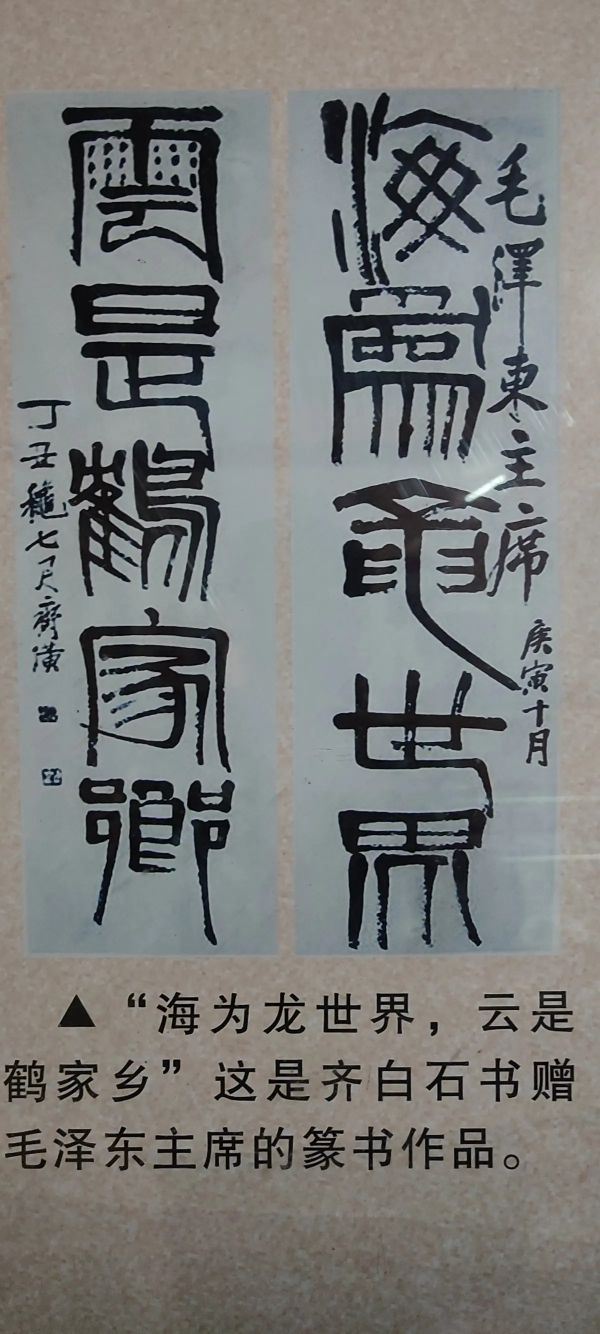 毛澤東主席
庚寅十月
海為龍世界
雲是鶴家鄉
丁丑穐七尺齊璜
▲“海为龙世界，云是
鹤家乡”这是齐白石书赠
毛泽东主席的篆书作品。